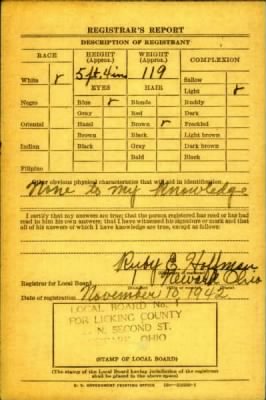 REGISTRAR'S REPORT
DESCRIPTION OF REGISTRANT
RACE HEIGHT (Approx.) WEIGHT (Approx.) COMPLEXION
White ✓ 5 ft. 4 in 119 Sallow
EYES HAIR Light ✓
Negro Blue ✓ Blonde Ruddy
Gray Red Dark
Oriental Hazel Brown ✓ Freckled
Brown Black Light brown
Indian Black Gray Dark brown
Bald Black
Filipino
Other obvious physical characteristics that will aid in identification
None to my knowledge
I certify that my answers are true; that the person registered has read or has had
read to him his own answers; that I have witnessed his signature or mark and that
all of his answers of which I have knowledge are true, except as follows:
Ruby E. Hoffman
Registrar for Local Board Newark Ohio
Date of registration November 10, 1942
LOCAL BOARD No. 1
FOR LICKING COUNTY
N. SECOND ST.
OHIO
(STAMP OF LOCAL BOARD)
(The stamp of the Local Board having jurisdiction of the registrant
shall be placed in the above space)
U. S. GOVERNMENT PRINTING OFFICE